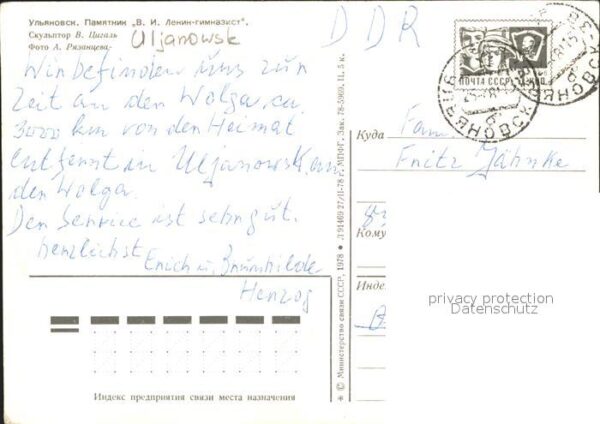 Ульяновск. Памятник „В. И. Ленин-гимназист".
Скульптор В. Цигаль
Фото А. Рязанцева
Uljanowsk
DDR
Wir befinden uns zur
Zeit an der Wolga, ca
3000 km von der Heimat
entfernt in Uljanowsk an
der Wolga.
Der Service ist sehr gut.
herzlichst Erich u. Brunhilde
Herzog
ПОЧТА СССР
Куда
Fam.
Fritz Jähnke
Кому
Индекс
privacy protection
Datenschutz
* © Министерство связи СССР, 1978 ● Л 91469 27/II-78 г. МПФГ. Зак. 78-5969. Ц. 5 к.
Индекс предприятия связи места назначения